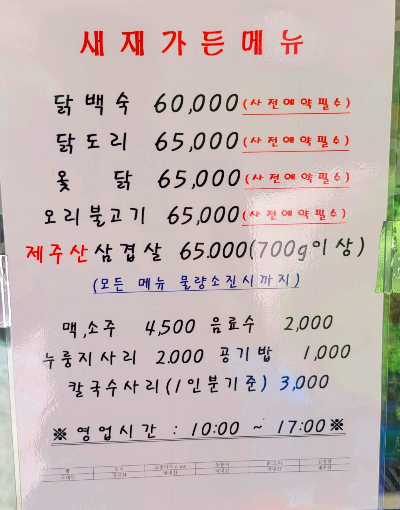 새재가든메뉴
닭백숙 60,000(사전예약필수)
닭도리 65,000(사전예약필수)
옻 닭 65,000(사전예약필수)
오리불고기 65,000(사전예약필수)
제주산삼겹살 65.000(700g이상)
(모든 메뉴 물량소진시까지)
맥,소주 4,500 음료수 2,000
누룽지사리 2.000 공기밥 1,000
칼국수사리(1인분기준) 3,000
※영업시간 : 10:00 ~ 17:00※